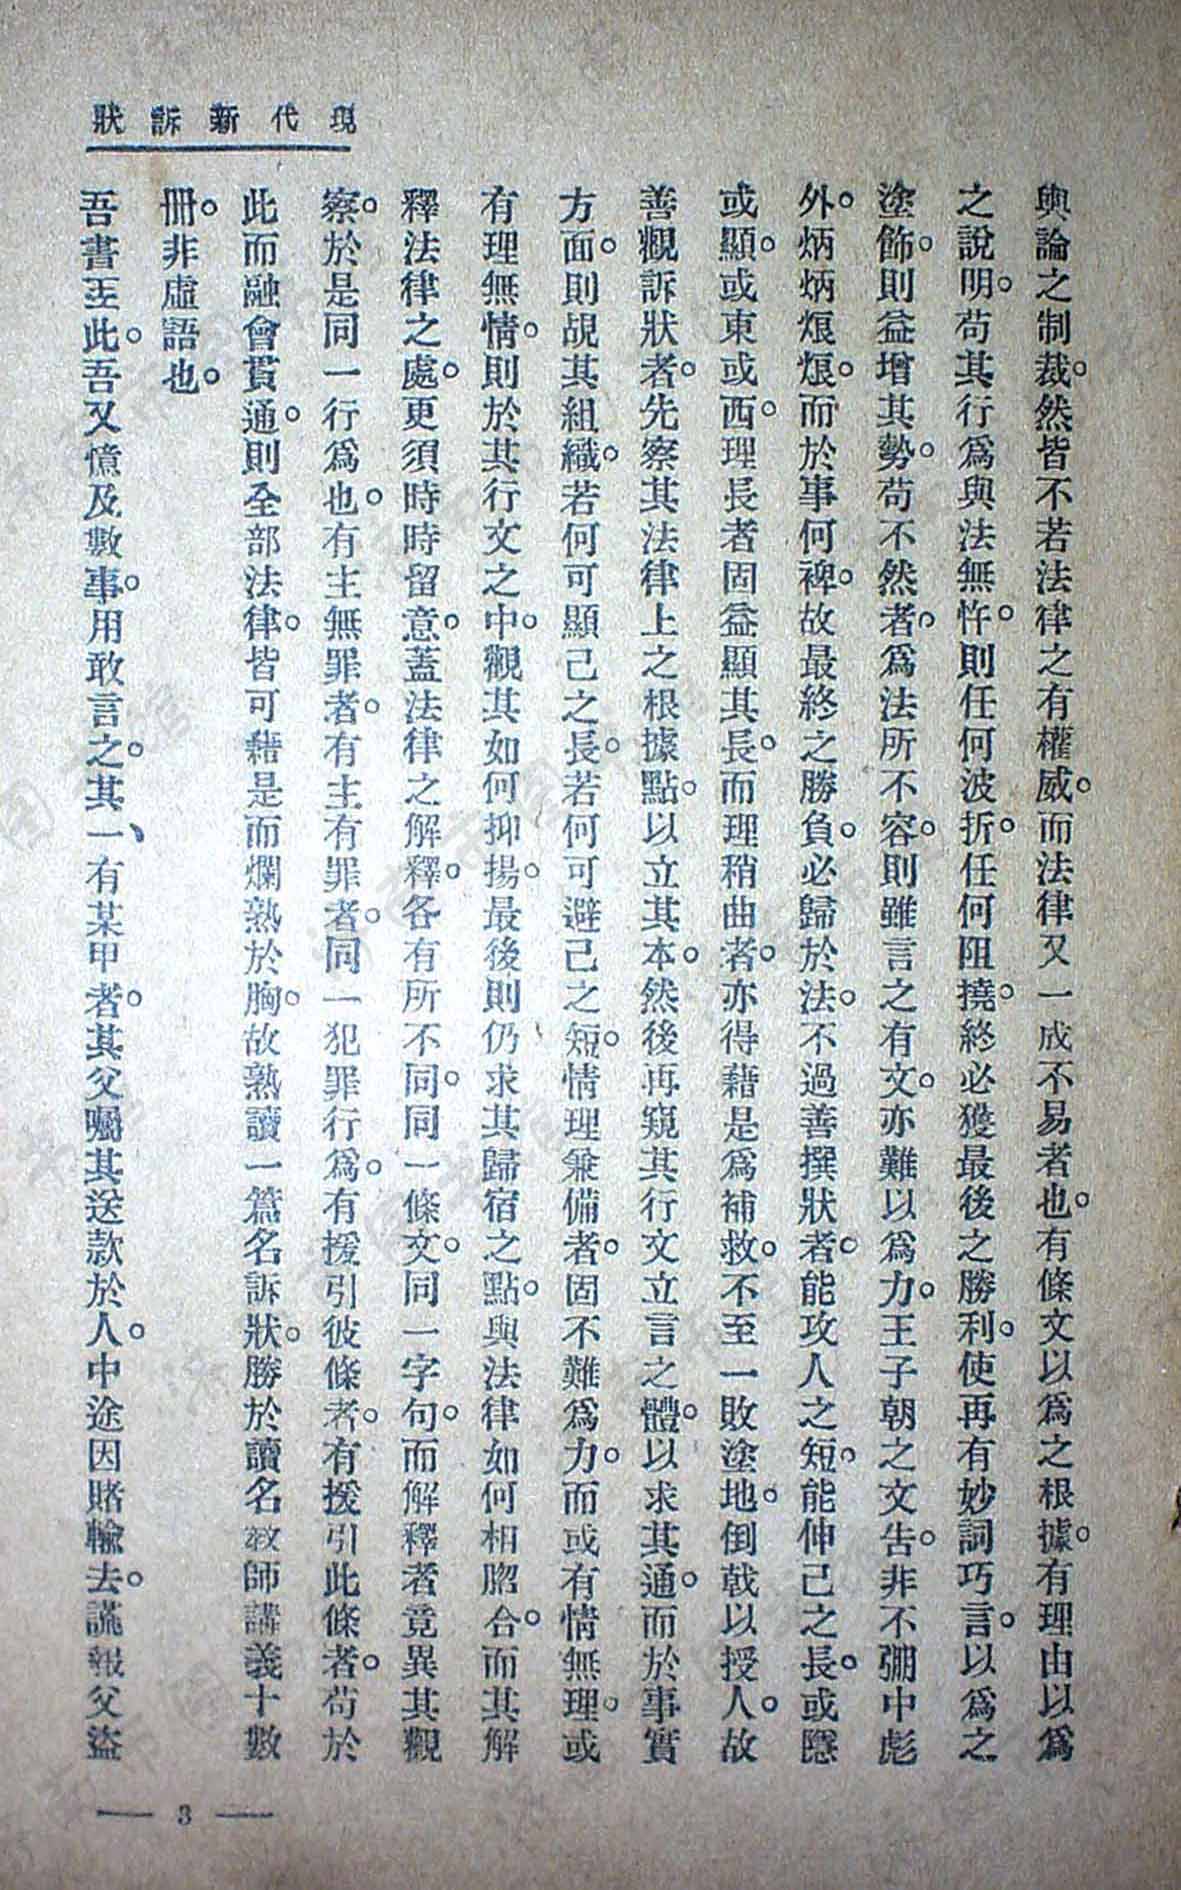 現代新訴狀
輿論之制裁。然皆不若法律之有權威。而法律又一成不易者也。有條文以爲之根據。有理由以爲
之說明。苟其行爲與法無忤。則任何波折。任何阻撓。終必獲最後之勝利。使再有妙詞巧言。以爲之
塗飾。則益增其勢。苟不然者。爲法所不容。則雖言之有文。亦難以爲力。王子朝之文告。非不弸中彪
外。炳炳烺烺。而於事何裨。故最終之勝負。必歸於法。不過善撰狀者。能攻人之短。能伸己之長。或隱
或顯。或東或西。理長者固益顯其長。而理稍曲者。亦得藉是爲補救。不至一敗塗地。倒戟以授人。故
善觀訴狀者。先察其法律上之根據點。以立其本。然後再窺其行文立言之體。以求其通。而於事實
方面。則覘其組織。若何可顯己之長。若何可避己之短。情理兼備者。固不難爲力。而或有情無理。或
有理無情。則於其行文之中。觀其如何抑揚。最後則仍求其歸宿之點。與法律如何相脗合。而其解
釋法律之處。更須時時留意。蓋法律之解釋。各有所不同。同一條文。同一字句。而解釋者竟異其觀
察。於是同一行爲也。有主無罪者。有主有罪者。同一犯罪行爲。有援引彼條者。有援引此條者。苟於
此而融會貫通。則全部法律。皆可藉是而爛熟於胸。故熟讀一篇名訴狀。勝於讀名教師講義十數
冊。非虛語也。
吾書至此。吾又憶及數事。用敢言之。其一、有某甲者。其父囑其送款於人。中途因賭輸去。謊報父盜
— 3 —